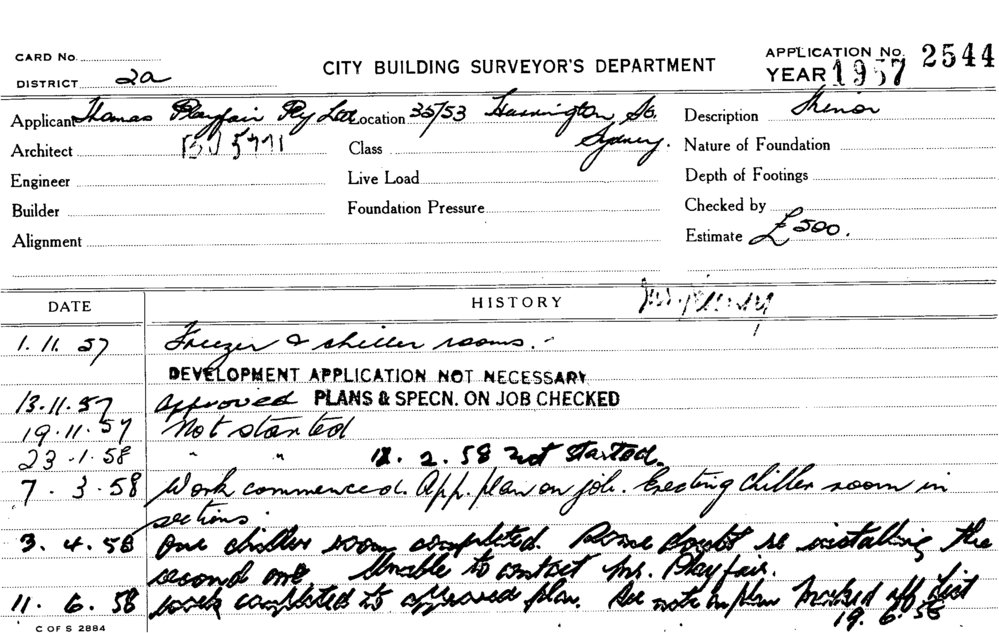 CARD No.
DISTRICT 2a
CITY BUILDING SURVEYOR'S DEPARTMENT
APPLICATION No. 2544
YEAR 1957
Applicant Thomas Playfair Pty Ltd Location 35/53 Harrington St. Sydney. Description Minor
Architect Class Nature of Foundation
Engineer Live Load Depth of Footings
Builder Foundation Pressure Checked by
Alignment Estimate £500.
DATE HISTORY
1.11.57 Freezer & chiller rooms.
DEVELOPMENT APPLICATION NOT NECESSARY
13.11.57 Approved PLANS & SPECN. ON JOB CHECKED
19.11.57 Not started
23.1.58 " " 18.2.58 not started.
7.3.58 Work commenced. App. plan on job. Erecting chiller room in
sections.
3.4.58 One chiller room completed. Some doubt re installing the
second one. Unable to contact Mr. Playfair.
11.6.58 Work completed to approved plan. See note on plan Marked off List
19.6.58
C OF S 2884